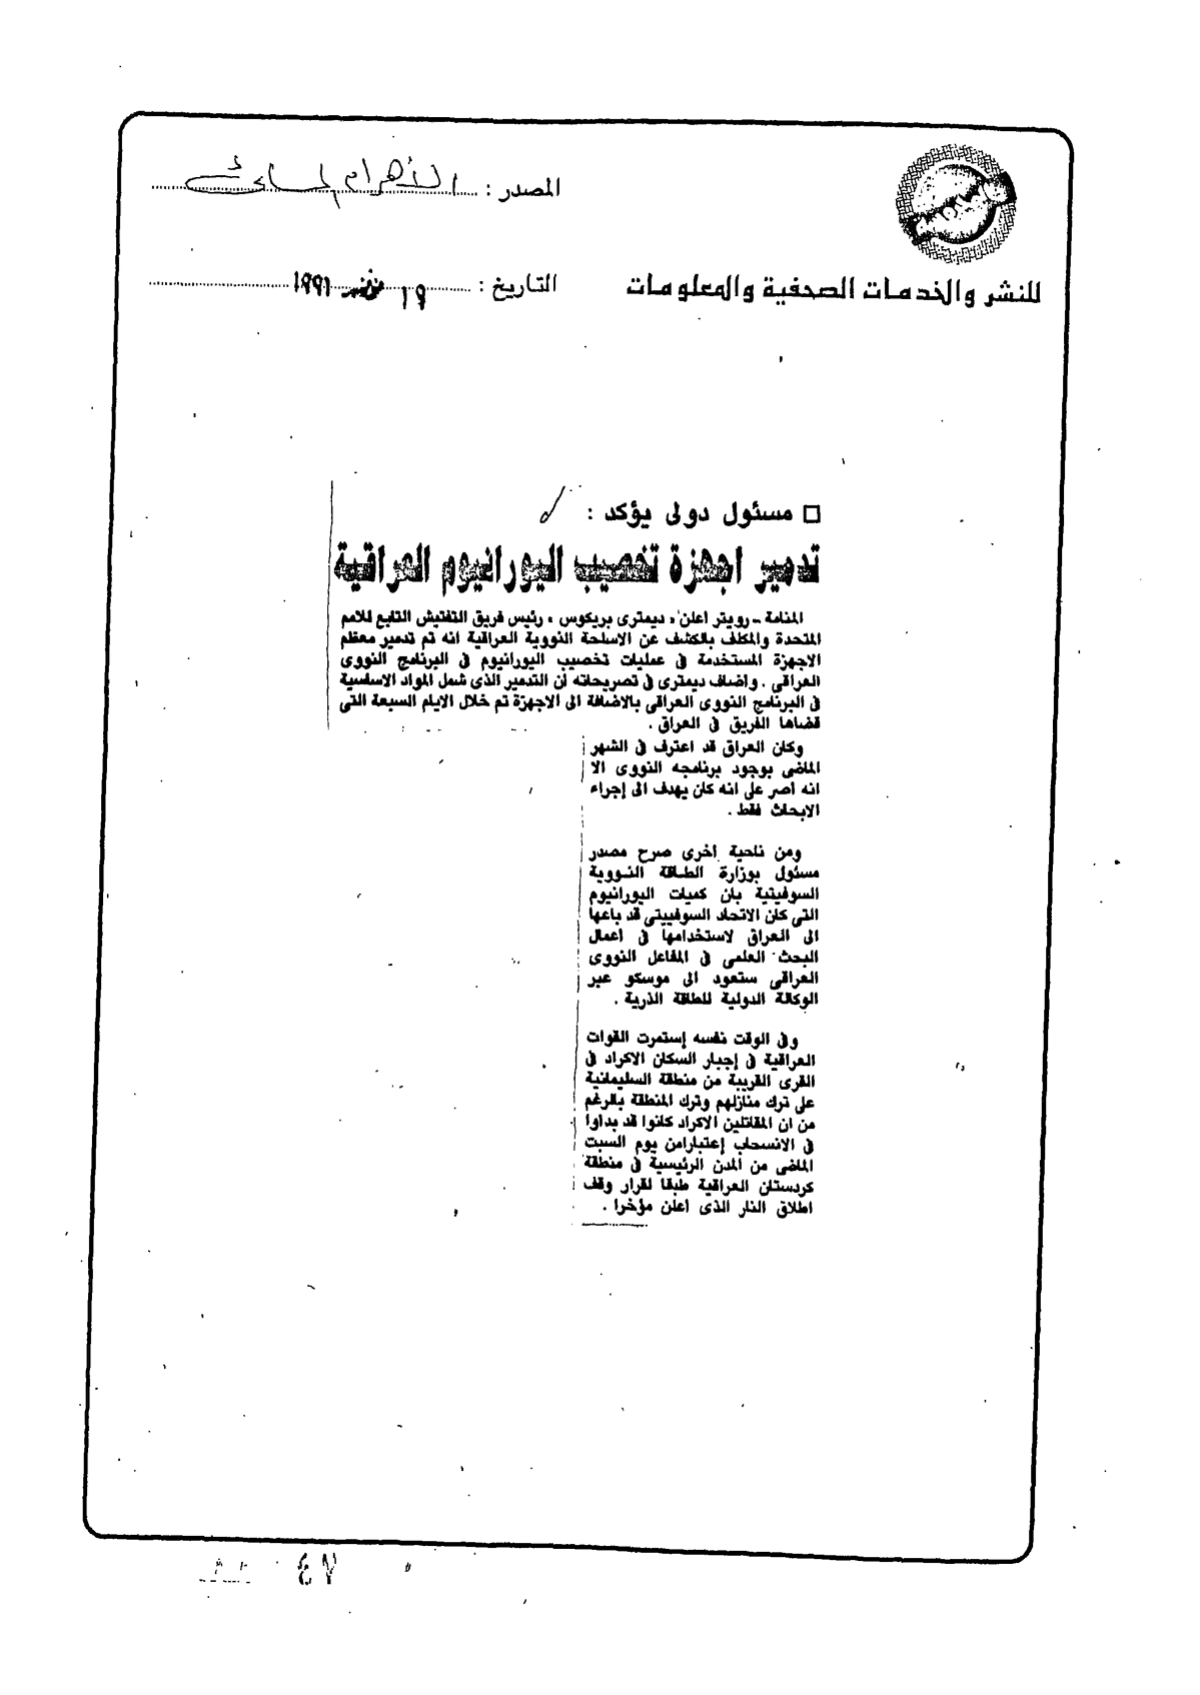 المصدر : الأهرام المسائى
للنشر والخدمات الصحفية والمعلومات
التاريخ : ١٩ نوفمبر ١٩٩١
□ مسئول دولى يؤكد :
تدمير اجهزة تخصيب اليورانيوم العراقية
المنامة - رويتر اعلن « ديمترى بريكوس » رئيس فريق التفتيش التابع للامم
المتحدة والمكلف بالكشف عن الاسلحة النووية العراقية انه تم تدمير معظم
الاجهزة المستخدمة فى عمليات تخصيب اليورانيوم فى البرنامج النووى
العراقى . واضاف ديمترى فى تصريحاته ان التدمير الذى شمل المواد الاساسية
فى البرنامج النووى العراقى بالاضافة الى الاجهزة تم خلال الايام السبعة التى
قضاها الفريق فى العراق .
وكان العراق قد اعترف فى الشهر
الماضى بوجود برنامجه النووى الا
انه اصر على انه كان يهدف الى إجراء
الابحاث فقط .
ومن ناحية اخرى صرح مصدر
مسئول بوزارة الطاقة النووية
السوفيتية بان كميات اليورانيوم
التى كان الاتحاد السوفييتى قد باعها
الى العراق لاستخدامها فى اعمال
البحث العلمى فى المفاعل النووى
العراقى ستعود الى موسكو عبر
الوكالة الدولية للطاقة الذرية .
وفى الوقت نفسه إستمرت القوات
العراقية فى إجبار السكان الاكراد فى
القرى القريبة من منطقة السليمانية
على ترك منازلهم وترك المنطقة بالرغم
من ان المقاتلين الاكراد كانوا قد بداوا
فى الانسحاب إعتبارامن يوم السبت
الماضى من المدن الرئيسية فى منطقة
كردستان العراقية طبقا لقرار وقف
اطلاق النار الذى اعلن مؤخرا .
٤٧